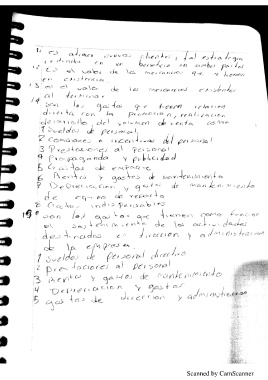 11 es atraer nuevos clientes, tal estrategia
redunda en un beneficio en ambas partes
12 es el valor de las mercancias que se tienen
en existencia
13 es el valor de las mercancias existentes
al terminar
14 son los gastos que tienen relacion
directa con la promocion, realizacion
desarrollo del volumen de venta como
1 sueldos de personal
2 comisiones e incentivos del personal
3 Prestaciones al personal
4 Propaganda y publicidad
5 Gastos de empaque
6 Rentas y gastos de mantenimiento
7 Depreciacion y gastos de mantenimiento
de equipo de reparto
8 Gastos indispensables
15 son los gastos que tienen como funcion
el sostenimiento de las actividades
destinadas a direccion y administracion
de la empresa.
1 sueldos de personal directivo
2 prestaciones al personal
3 Renta y gastos de mantenimiento
4 Depreciacion y gastos
5 gastos de direccion y administracion
Scanned by CamScanner